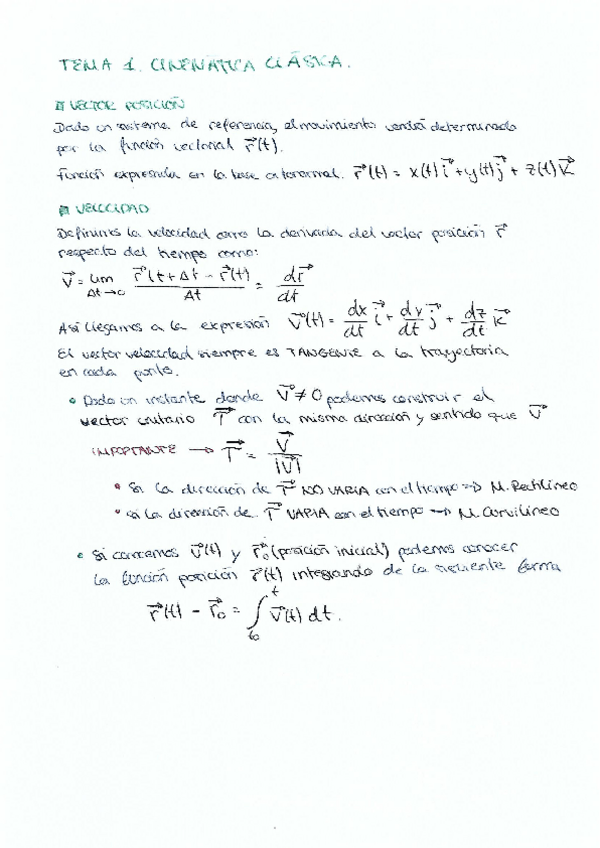 TEMA 1. CINEMÁTICA CLÁSICA.
VECTOR POSICIÓN
Dado un sistema de referencia, el movimiento vendrá determinado
por la función vectorial r⃗(t).
Función expresada en la base ortonormal. r⃗(t) = x(t) i⃗ + y(t) j⃗ + z(t) k⃗
VELOCIDAD
Definimos la velocidad como la derivada del vector posición r⃗
respecto del tiempo como:
v⃗ = lim Δt→0 (r⃗(t+Δt - r⃗(t)) / Δt = dr⃗/dt
Así llegamos a la expresión v⃗(t) = dx/dt i⃗ + dy/dt j⃗ + dz/dt k⃗
El vector velocidad siempre es TANGENTE a la trayectoria
en cada punto.
• Dado un instante donde v⃗ ≠ 0 podemos construir el
vector unitario T⃗ con la misma dirección y sentido que v⃗
IMPORTANTE → T⃗ = v⃗ / |v⃗|
• Si la dirección de T⃗ NO VARIA con el tiempo → M. Rectilíneo
• si la dirección de T⃗ VARIA con el tiempo → M. Curvilíneo
• Si conocemos v⃗(t) y r⃗₀ (posición inicial) podemos conocer
la función posición r⃗(t) integrando de la siguiente forma
r⃗(t) - r⃗₀ = ∫ₜ₀ᵗ v⃗(t) dt.